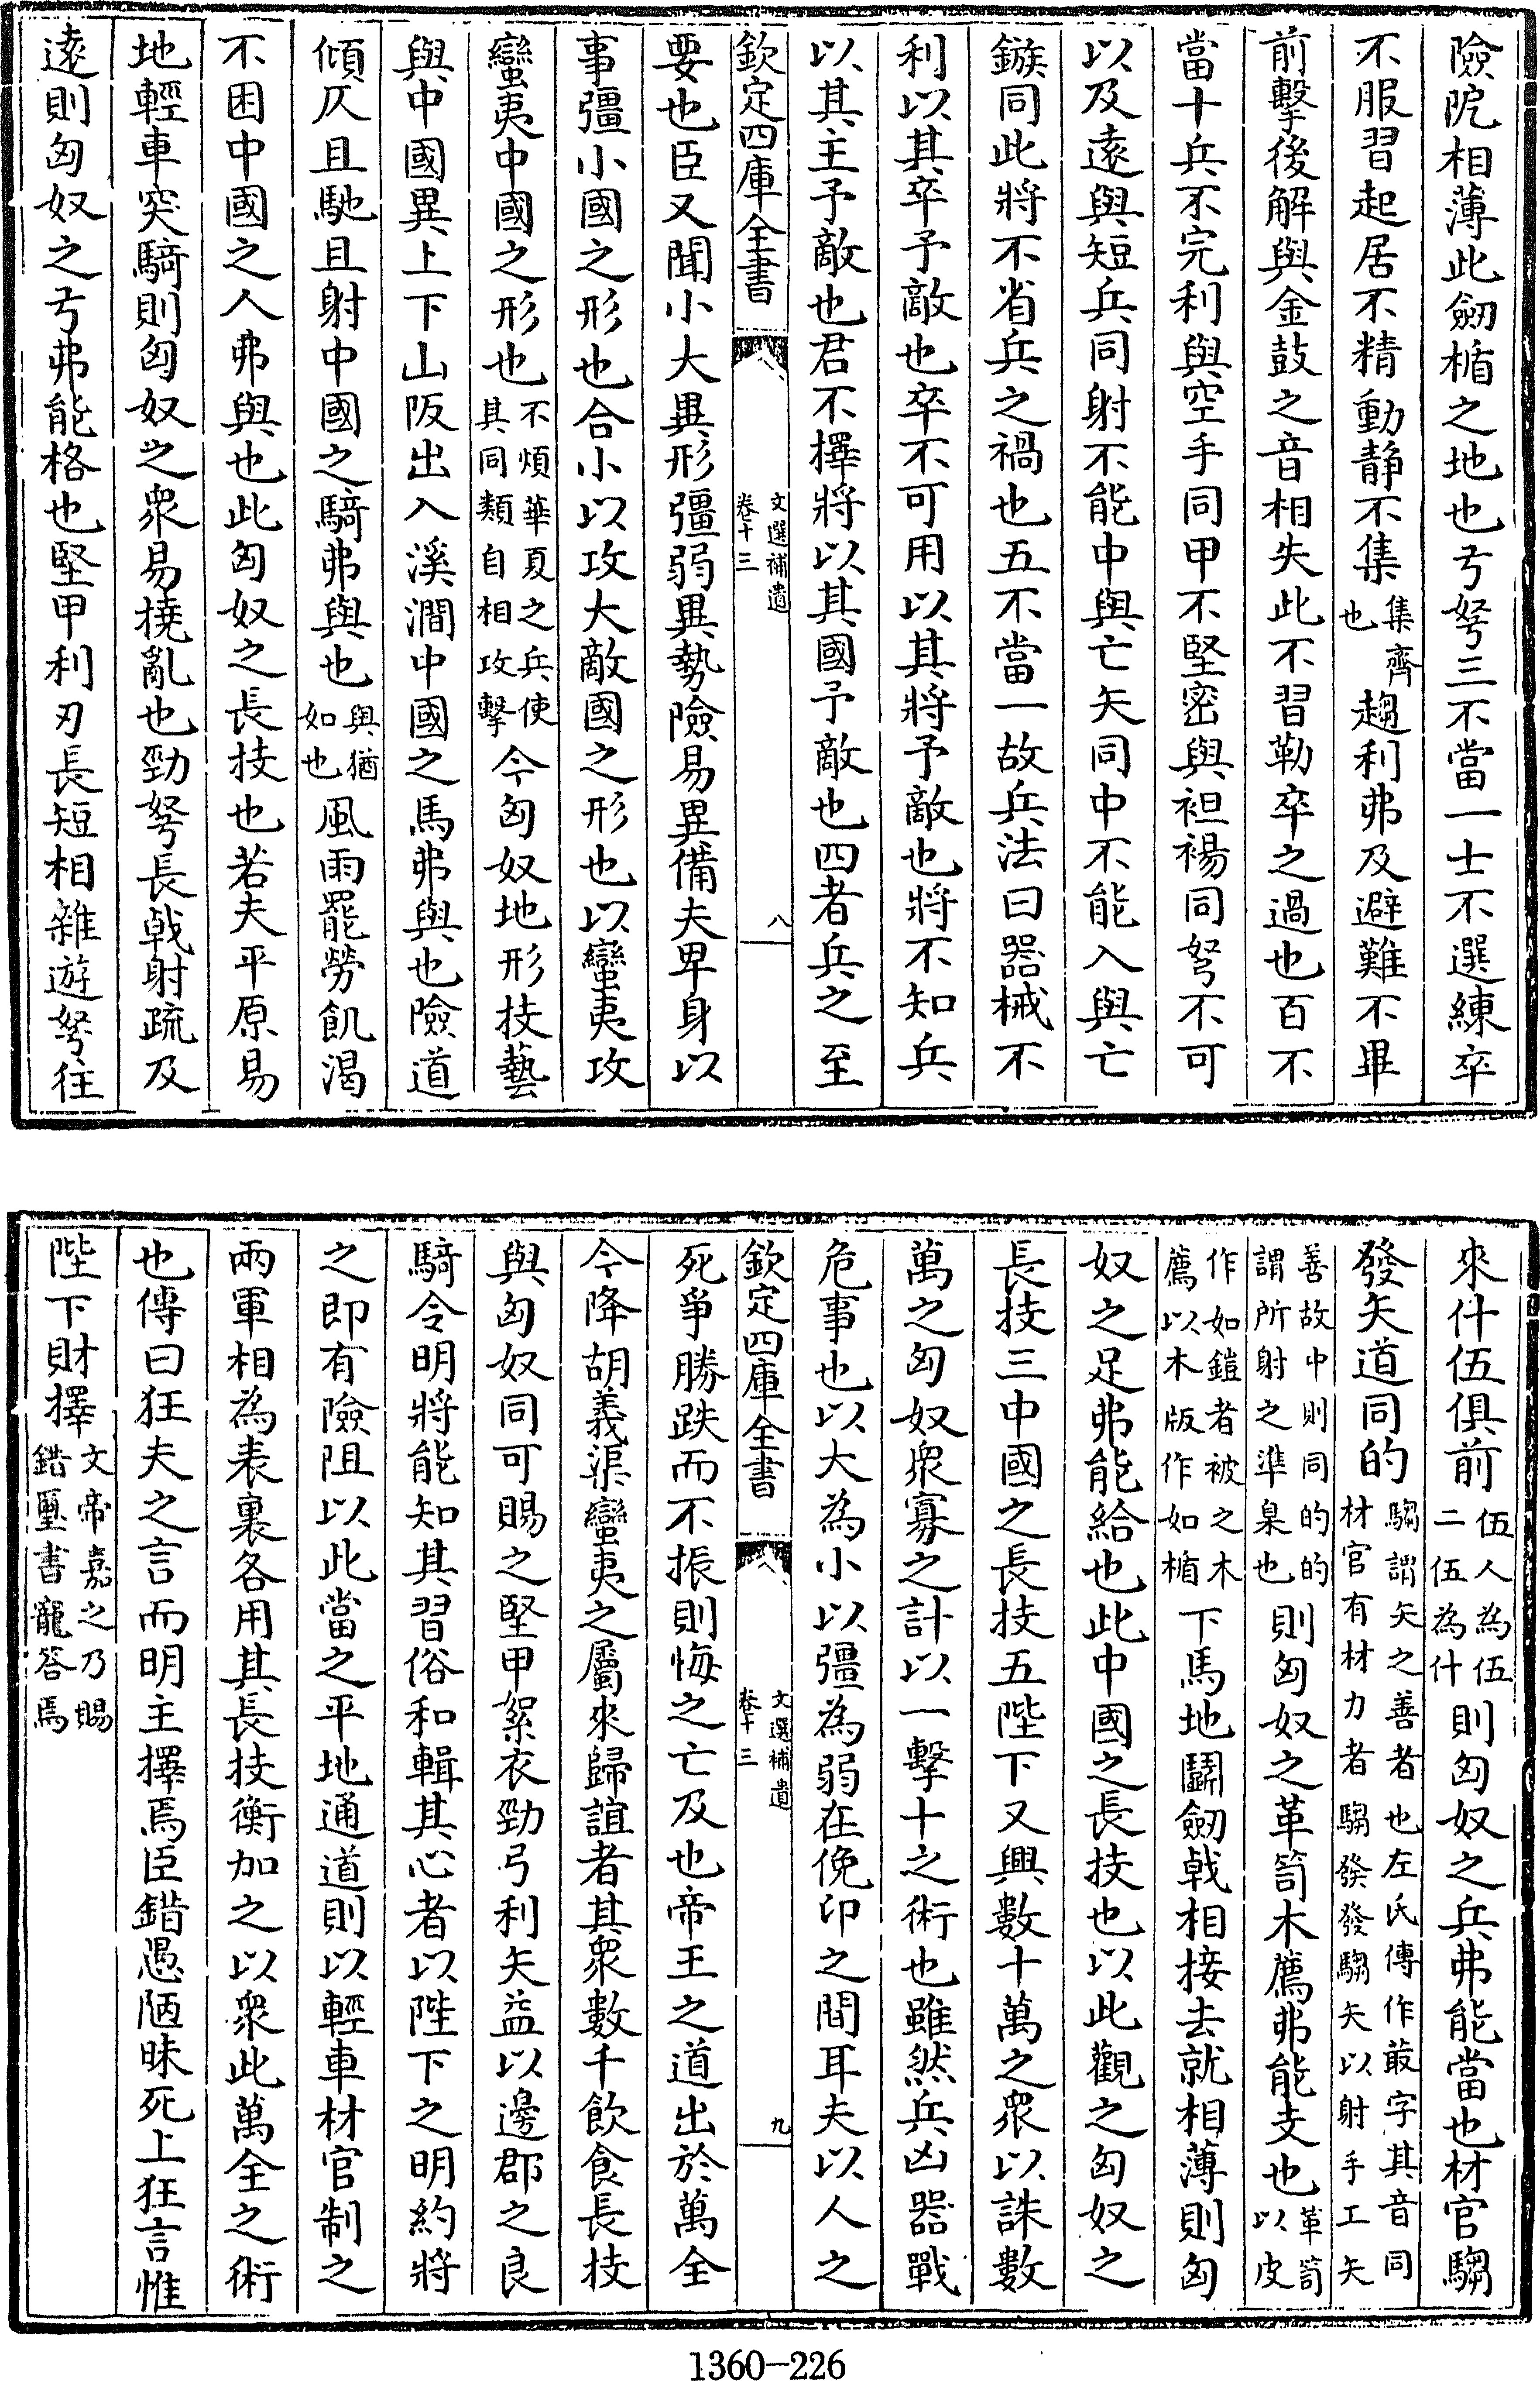 險阸相薄此劒楯之地也弓弩三不當一士不選練卒
不服習起居不精動静不集集齊也趨利弗及避難不畢
前擊後解與金鼓之音相失此不習勒卒之過也百不
當十兵不完利與空手同甲不堅密與袒裼同弩不可
以及遠與短兵同射不能中與亡矢同中不能入與亡
鏃同此將不省兵之禍也五不當一故兵法曰器械不
利以其卒予敵也卒不可用以其將予敵也將不知兵
以其主予敵也君不擇將以其國予敵也四者兵之至
欽定四庫全書 文選補遺卷十三 八
要也臣又聞小大異形彊弱異勢險易異備夫卑身以
事彊小國之形也合小以攻大敵國之形也以蠻夷攻
蠻夷中國之形也不煩華夏之兵使其同類自相攻擊今匈奴地形技藝
與中國異上下山阪出入溪澗中國之馬弗與也險道
傾仄且馳且射中國之騎弗與也與猶如也風雨罷勞飢渴
不困中國之人弗與也此匈奴之長技也若夫平原易
地輕車突騎則匈奴之衆易撓亂也勁弩長戟射疏及
遠則匈奴之弓弗能格也堅甲利刃長短相雜遊弩往
來什伍俱前伍人為伍二伍為什則匈奴之兵弗能當也材官騶
發矢道同的騶謂矢之善者也左氏傳作菆字其音同材官有材力者騶發發騶矢以射手工矢
善故中則同的的謂所射之準臬也則匈奴之革笥木薦弗能支也革笥以皮
作如鎧者被之木薦以木版作如楯下馬地鬭劒戟相接去就相薄則匈
奴之足弗能給也此中國之長技也以此觀之匈奴之
長技三中國之長技五陛下又興數十萬之衆以誅數
萬之匈奴衆寡之計以一擊十之術也雖然兵凶器戰
危事也以大為小以彊為弱在俛卬之間耳夫以人之
欽定四庫全書 文選補遺卷十三 九
死爭勝跌而不振則悔之亡及也帝王之道出於萬全
今降胡義渠蠻夷之屬來歸誼者其衆數千飲食長技
與匈奴同可賜之堅甲絮衣勁弓利矢益以邊郡之良
騎令明將能知其習俗和輯其心者以陛下之明約將
之即有險阻以此當之平地通道則以輕車材官制之
兩軍相為表裏各用其長技衡加之以衆此萬全之術
也傳曰狂夫之言而明主擇焉臣錯愚陋昧死上狂言惟
陛下財擇文帝嘉之乃賜錯璽書寵答焉
1360-226